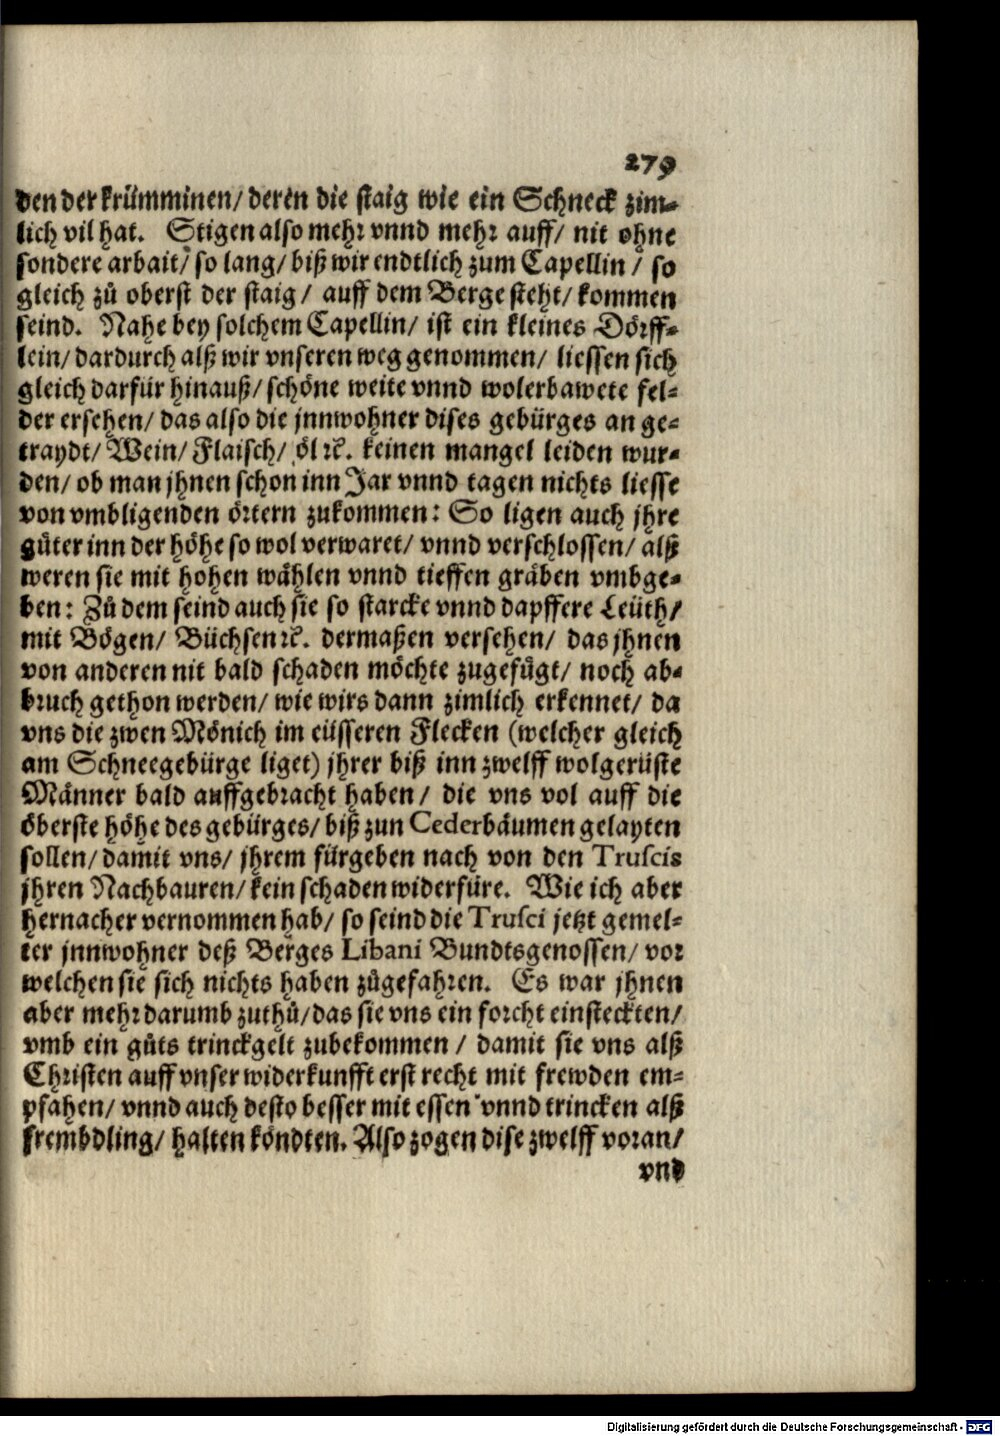 279
den der krümminen/ deren die staig wie ein Schneck zim-
lich vil hat. Stigen also mehr vnnd mehr auff/ nit ohne
sondere arbait/ so lang/ biß wir endtlich zum Capellin / so
gleich zů oberst der staig/ auff dem Berge steht/ kommen
seind. Nahe bey solchem Capellin/ ist ein kleines Dörff-
lein/ dardurch alß wir vnseren weg genommen/ liessen sich
gleich darfür hinauß/ schöne weite vnnd wolerbawete fel-
der ersehen/ das also die jnnwohner dises gebürges an ge-
traydt/ Wein/ Flaisch/ öl ꝛc. keinen mangel leiden wur-
den/ ob man jhnen schon inn Jar vnnd tagen nichts liesse
von vmbligenden örtern zukommen: So ligen auch jhre
güter inn der höhe so wol verwaret/ vnnd verschlossen/ alß
weren sie mit hohen wählen vnnd tieffen gräben vmbge-
ben: Zů dem seind auch sie so starcke vnnd dapffere Leüth/
mit Bögen/ Büchsen ꝛc. dermaßen versehen/ das jhnen
von anderen nit bald schaden möchte zugefügt/ noch ab-
bruch gethon werden/ wie wirs dann zimlich erkennet/ da
vns die zwen Mönich im eüsseren Flecken (welcher gleich
am Schneegebürge liget) jhrer biß inn zwelff wolgerüste
Männer bald auffgebracht haben/ die vns vol auff die
öberste höhe des gebürges/ biß zun Cederbäumen gelayten
sollen/ damit vns/ jhrem fürgeben nach von den Truscis
jhren Nachbauren/ kein schaden widerfüre. Wie ich aber
hernacher vernommen hab/ so seind die Trusci jetzt gemel-
ter jnnwohner deß Berges Libani Bundtsgenossen/ vor
welchen sie sich nichts haben zůgefahren. Es war jhnen
aber mehr darumb zuthů/ das sie vns ein forcht einsteckten/
vmb ein gůts trinckgelt zubekommen / damit sie vns alß
Christen auff vnser widerkunfft erst recht mit frewden em-
pfahen/ vnnd auch desto besser mit essen vnnd trincken alß
frembdling/ halten köndten. Also zogen dise zwelff voran/
vnd
Digitalisierung gefördert durch die Deutsche Forschungsgemeinschaft - DFG